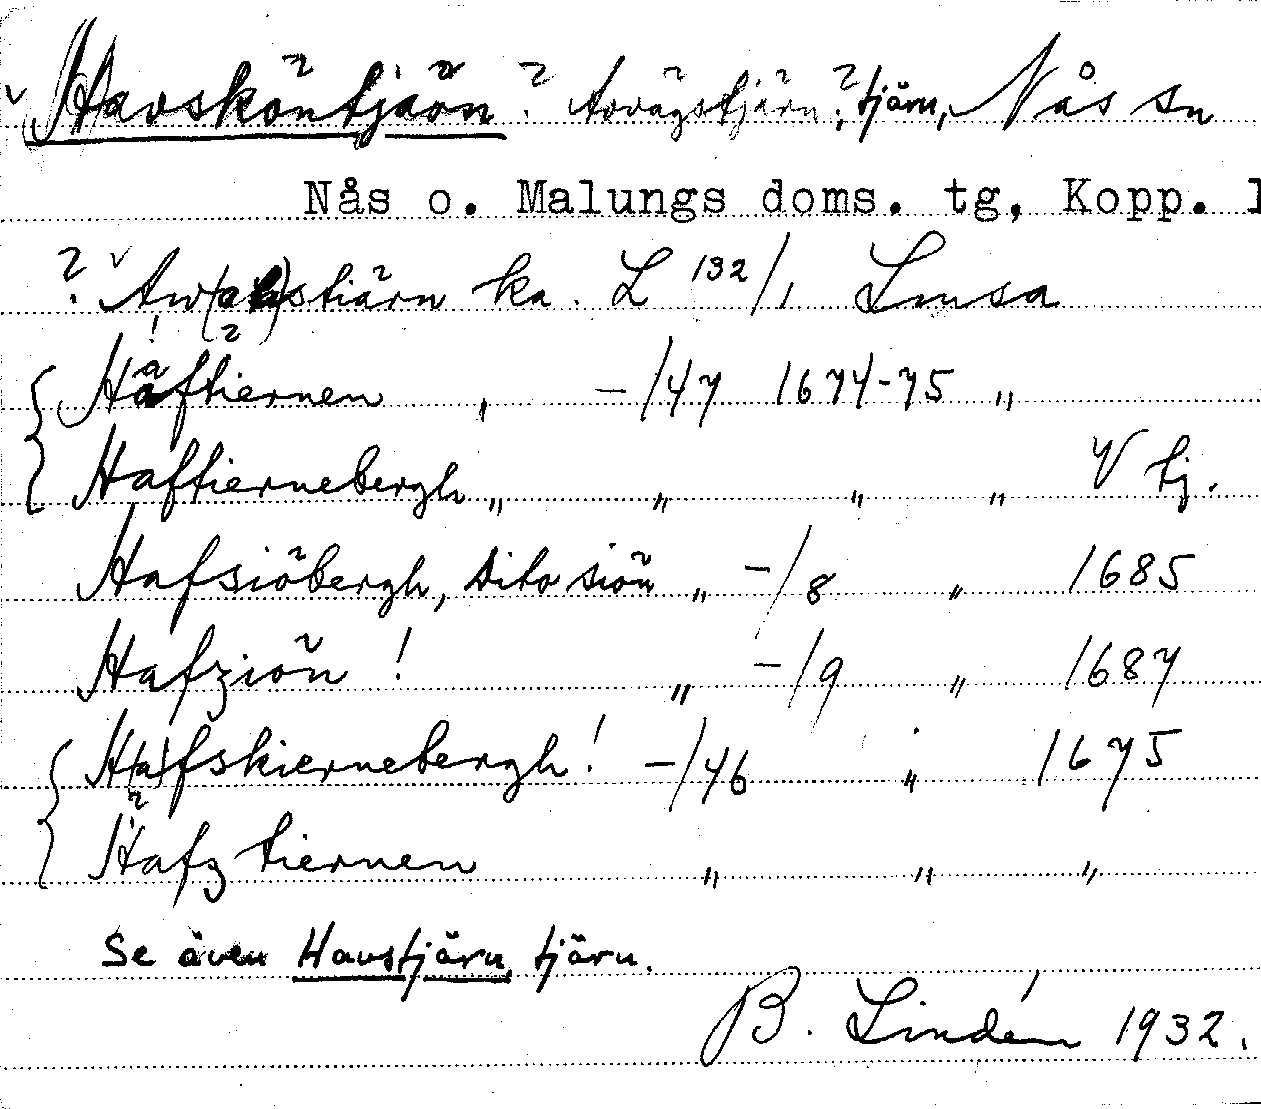 Havsköntjärn ? Avvägstjärn?, tjärn, Nås sn
Nås o. Malungs doms. tg, Kopp. l
? Aw(ah)stiärn ka. L 132/1 Lmsa
Håftiernen " -/47 1674-75 "
Haftiernebergh " " " " V tj.
Hafsiöbergh, Dito siön " -/8 " 1685
Hafziön ! " -/9 " 1687
H(a)fskiernebergh! -/46 " 1675
Hafz tiernen " " "
Se även Havstjärn, tjärn.
B. Lindén 1932.